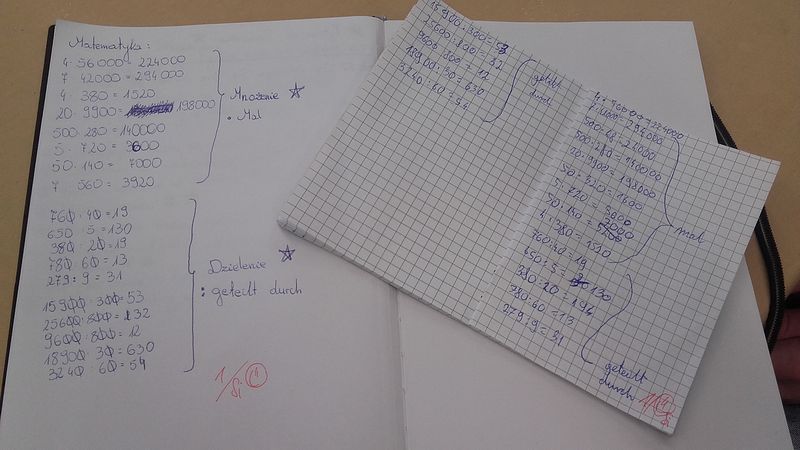 Matematyka:
4 · 56000 = 224000
7 · 42000 = 294000
4 · 380 = 1520
20 · 9900 = 198000
500 · 280 = 140000
5 · 720 = 3600
50 · 140 = 7000
7 · 560 = 3920
Mnożenie
• Mal
760 : 40 = 19
650 : 5 = 130
380 : 20 = 19
780 : 60 = 13
279 : 9 = 31
15900 : 300 = 53
25600 : 800 = 32
9600 : 800 = 12
18900 : 30 = 630
3240 : 60 = 54
Dzielenie
: geteilt durch
1/Si
15900 : 300 = 53
25600 : 800 = 32
9600 : 800 = 12
18900 : 30 = 630
3240 : 60 = 54
geteilt
durch
500 · 280 = 140000
20 · 9900 = 198000
5 · 720 = 3600
50 · 140 = 7000
4 · 380 = 1520
mal
760 : 40 = 19
650 : 5 = 130
380 : 20 = 194
780 : 60 = 13
279 : 9 = 31
geteilt
durch